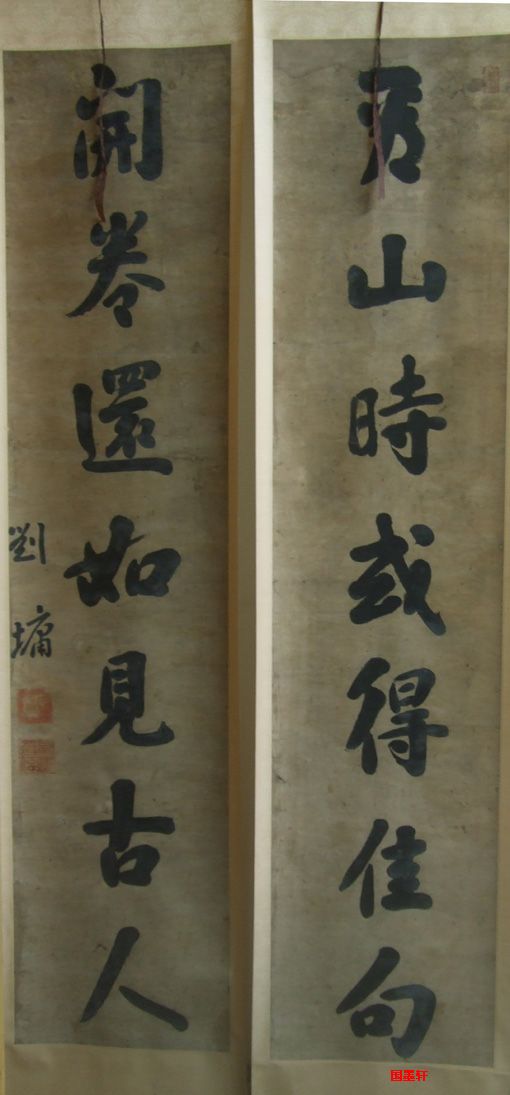 山時或得佳句
開卷還如見古人
劉墉
国墨轩